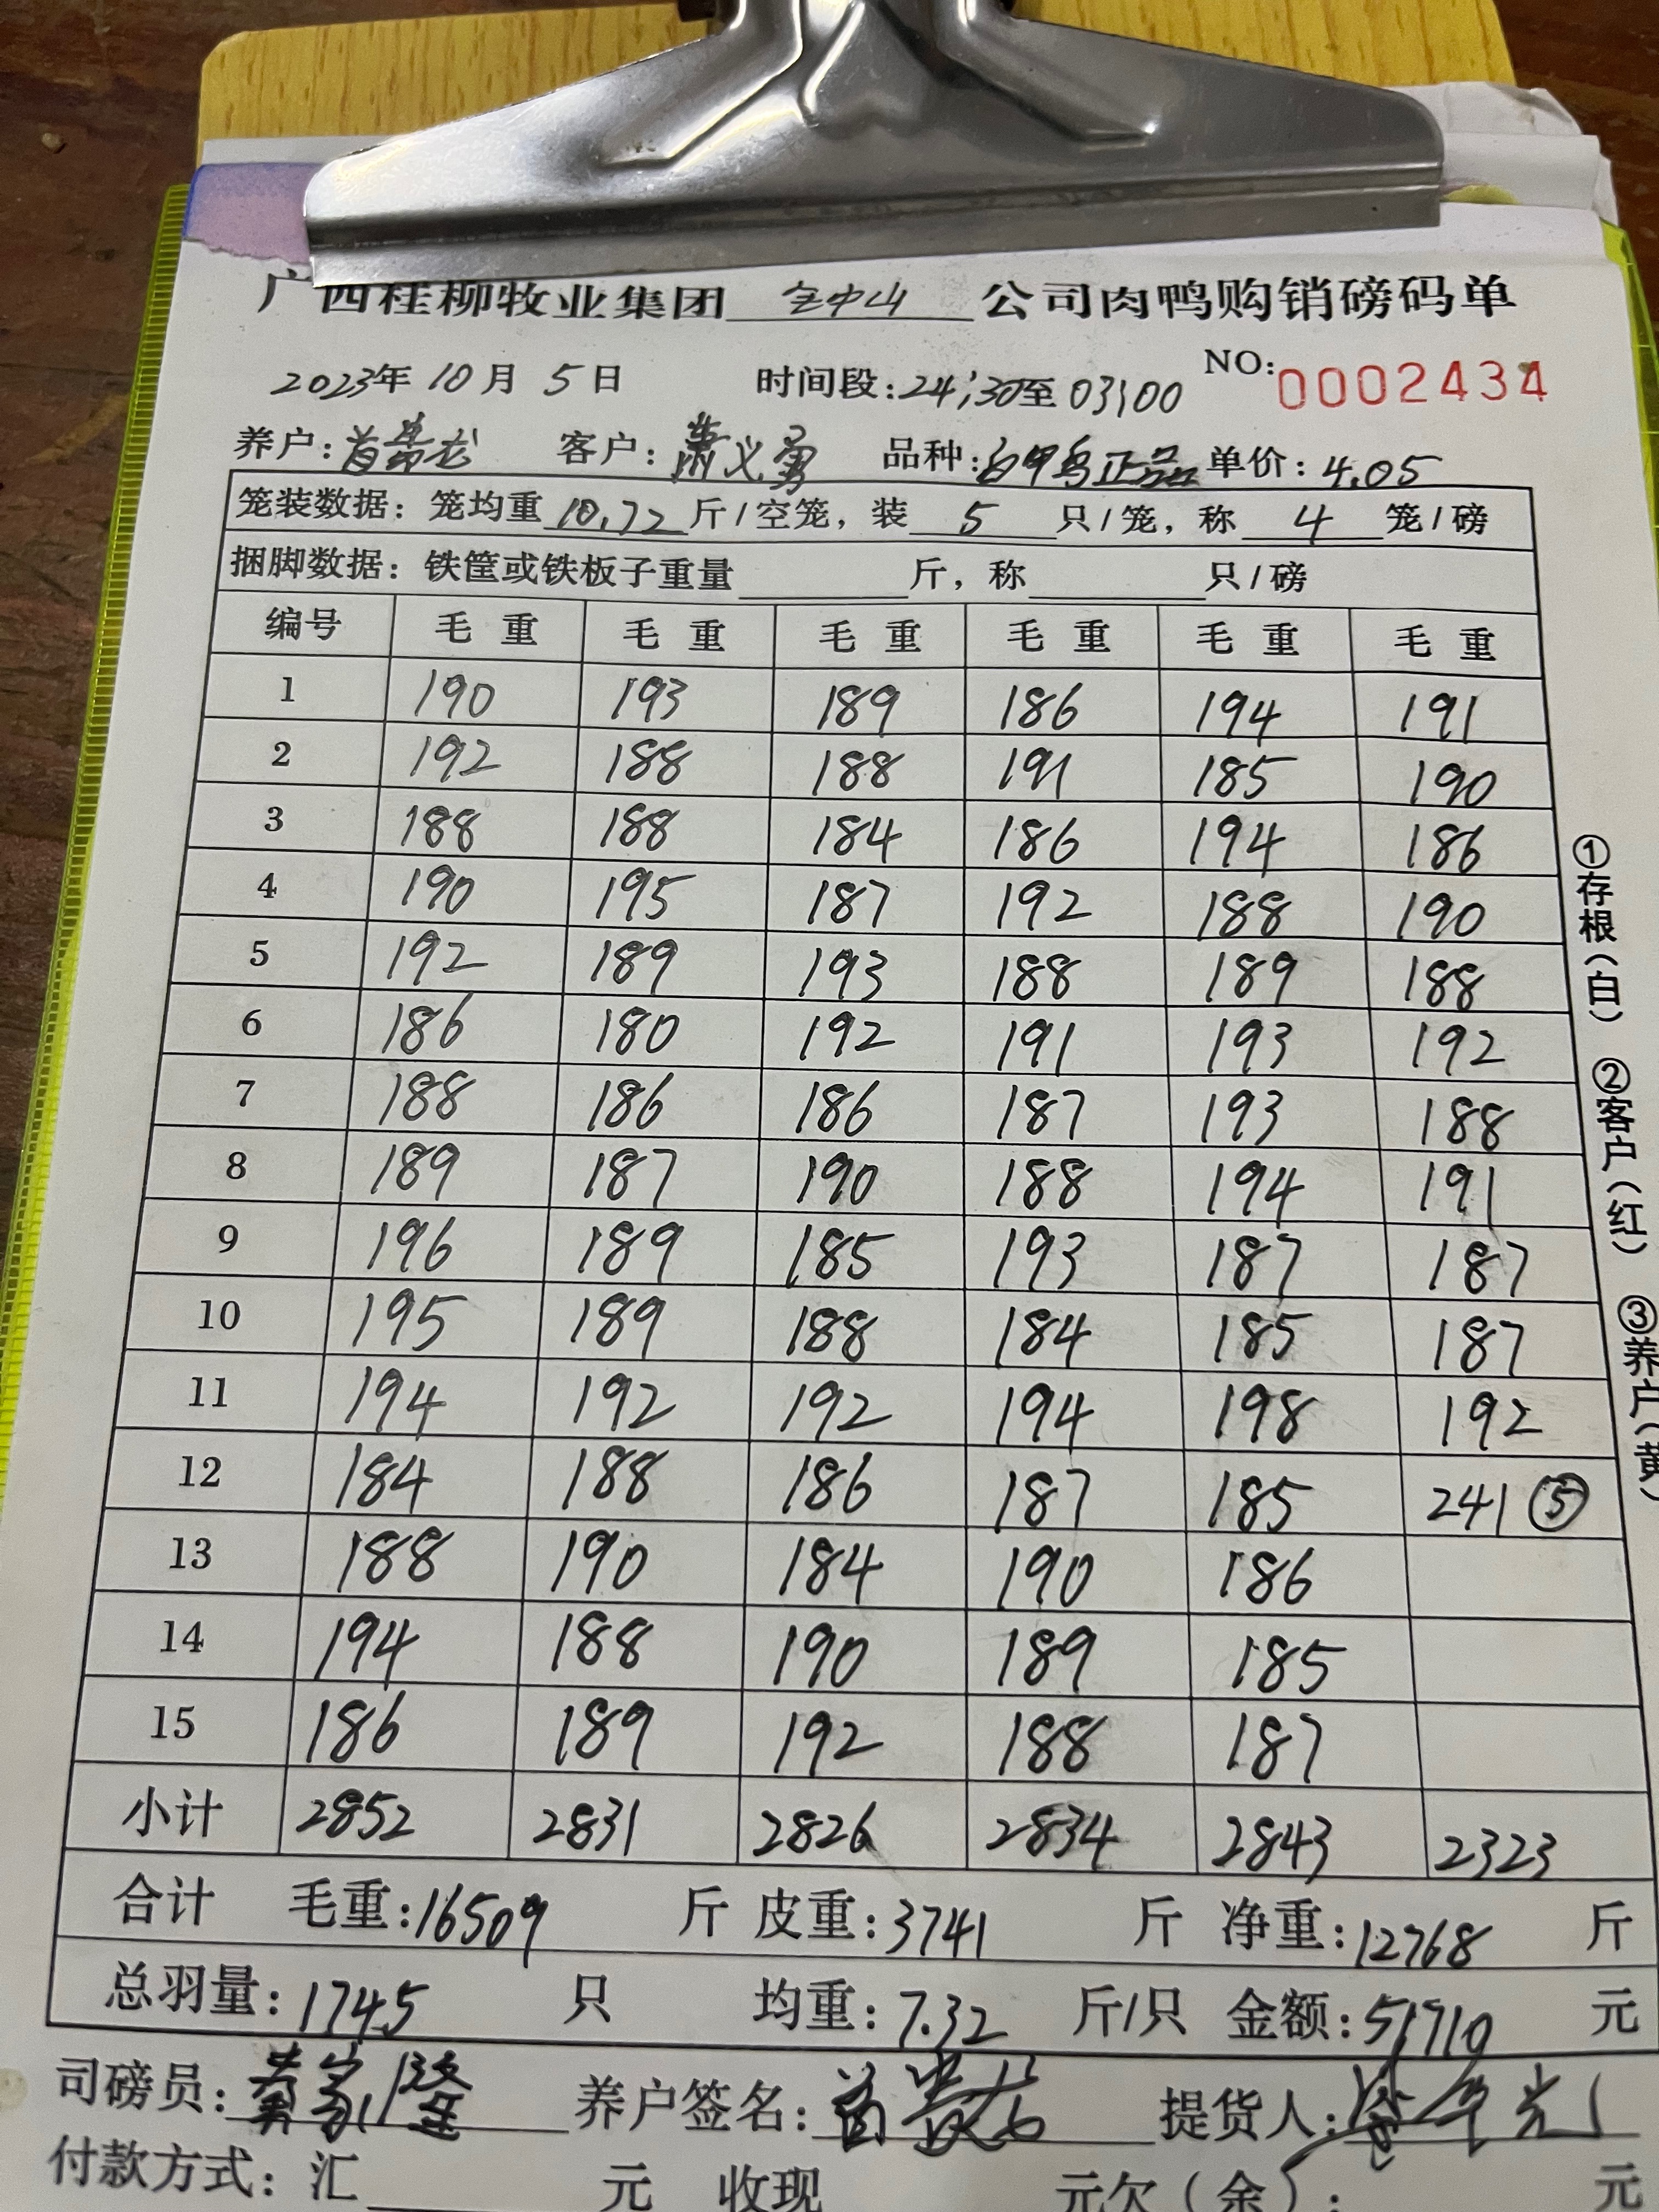 广西桂柳牧业集团 宝中山 公司肉鸭购销磅码单
2023年 10月 5日 时间段:24:30至03:00 NO:0002434
养户: 客户:萧义勇 品种:白甲鸟正品 单价:4.05
笼装数据:笼均重10.72斤/空笼,装5只/笼,称4笼/磅
捆脚数据:铁筐或铁板子重量 斤,称 只/磅
编号 毛重 毛重 毛重 毛重 毛重 毛重
1 190 193 189 186 194 191
2 192 188 188 191 185 190
3 188 188 184 186 194 186
4 190 195 187 192 188 190
5 192 189 193 188 189 188
6 186 180 192 191 193 192
7 188 186 186 187 193 188
8 189 187 190 188 194 191
9 196 189 185 193 187 187
10 195 189 188 184 185 187
11 194 192 192 194 198 192
12 184 188 186 187 185 241 ⑤
13 188 190 184 190 186
14 194 188 190 189 185
15 186 189 192 188 187
小计 2852 2831 2826 2834 2843 2323
合计 毛重:16509 斤 皮重:3741 斤 净重:12768 斤
总羽量:1745 只 均重:7.32 斤/只 金额:51710 元
司磅员: 养户签名: 提货人:
付款方式:汇 元 收现 元欠(余): 元
①存根(白) ②客户(红) ③养户(黄)